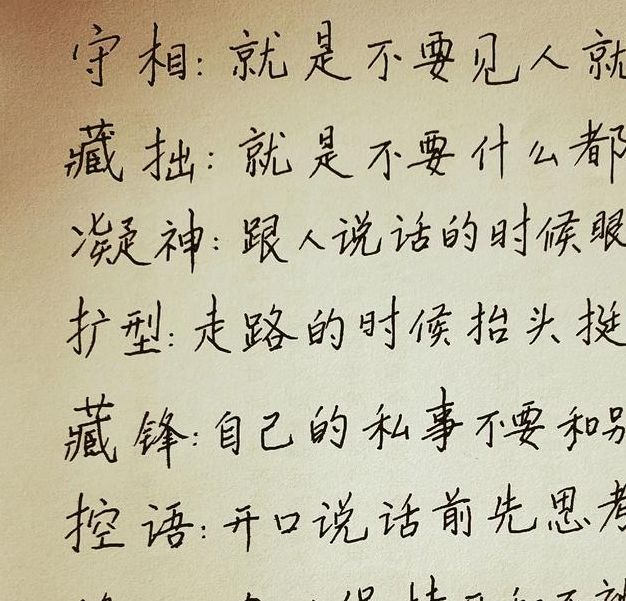 守相:就是不要见人就
藏拙:就是不要什么都
凝神:跟人说话的时候眼
扩型:走路的时候抬头挺
藏锋:自己的私事不要和别
控语:开口说话前先思考